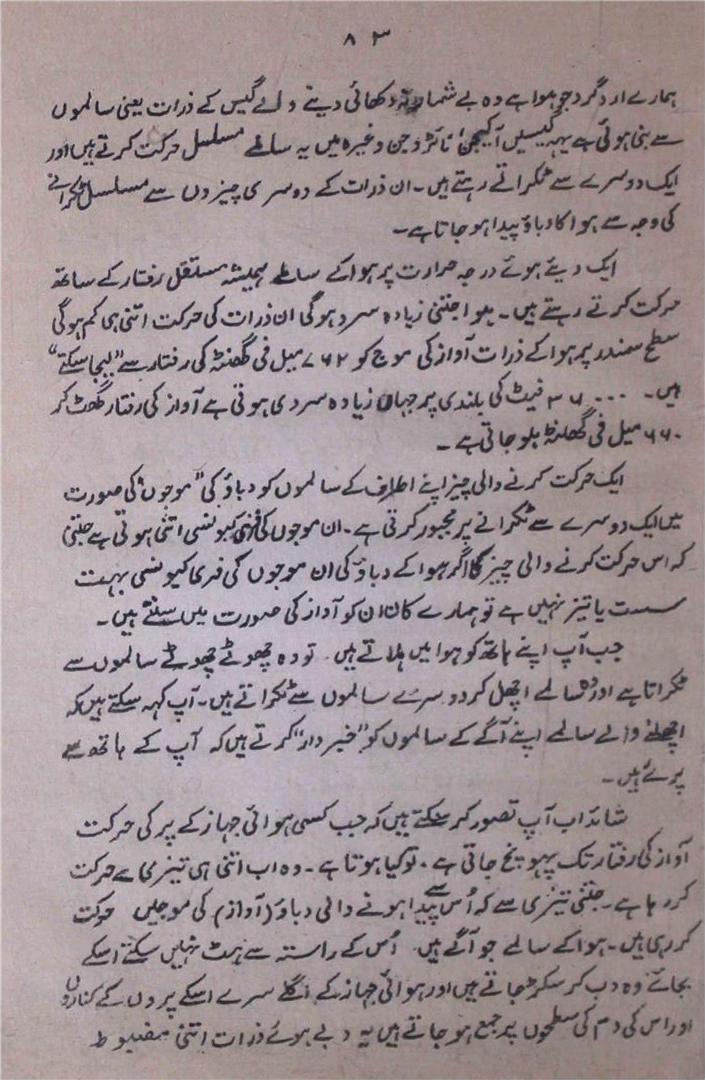 ۸۳
ہمارے ارد گرد جو ہوا ہے وہ بے شمار نہ دکھائی دینے والے گیس کے ذرات یعنی سالموں
سے بنی ہوئی ہے یہہ گیسیں آکیجن، نائٹروجن وغیرہ ہیں یہ سالمے مسلسل حرکت کرتے ہیں اور
ایک دوسرے سے ٹکراتے رہتے ہیں۔ ان ذرات کے دوسری چیزوں سے مسلسل ٹکرانے
کی وجہ سے ہوا کا دباؤ پیدا ہو جاتا ہے۔
ایک دیئے ہوئے درجہ حرارت پر ہوا کے سالمے ہمیشہ مستقل رفتار کے ساتھ
حرکت کرتے رہتے ہیں۔ ہوا جتنی زیادہ سرد ہوگی ان ذرات کی حرکت اتنی ہی کم ہوگی
سطح سمندر پر ہوا کے ذرات آواز کی موج کو ۷۶۲ میل فی گھنٹہ کی رفتار سے "لیجا سکتے"
ہیں۔ ۳۶۰۰۰ فیٹ کی بلندی پر جہاں زیادہ سردی ہوتی ہے آواز کی رفتار گھٹ کر
۶۶۰ میل فی گھنٹہ ہو جاتی ہے۔
ایک حرکت کرنے والی چیز اپنے اطراف کے سالموں کو دباؤ کی "موجوں" کی صورت
میں ایک دوسرے سے ٹکرانے پر مجبور کرتی ہے۔ ان موجوں کی فریکیونسی اتنی ہوتی ہے جتنی
کہ اس حرکت کرنے والی چیز کا اگر ہوا کے دباؤ کی ان موجوں کی فری کیونسی بہت
سست یا تیز نہیں ہے تو ہمارے کان ان کو آواز کی صورت میں سنتے ہیں۔
جب آپ اپنے ہاتھ کو ہوا میں ہلاتے ہیں۔ تو وہ چھوٹے چھوٹے سالموں سے
ٹکراتا ہے اور وہ سالمے اچھل کر دوسرے سالموں سے ٹکراتے ہیں۔ آپ کہہ سکتے ہیں کہ
اچھلنے والے سالمے اپنے آگے کے سالموں کو "خبردار" کرتے ہیں کہ آپ کے ہاتھ سے
پرے ہیں۔
شائد اب آپ تصور کر سکتے ہیں کہ جب کسی ہوائی جہاز کے پر کی حرکت
آواز کی رفتار تک پہونچ جاتی ہے۔ تو کیا ہوتا ہے۔ وہ اب اتنی ہی تیزی سے حرکت
کر رہا ہے۔ جتنی تیزی سے کہ اُس سے پیدا ہونے والی دباؤ (آواز) کی موجیں حرکت
کر رہی ہیں۔ ہوا کے سالمے جو آگے ہیں۔ اُس کے راستہ سے ہٹ نہیں سکتے اسکے
بجائے وہ دب کر سکڑ جاتے ہیں اور ہوائی جہاز کے اگلے سرے اسکے پروں کے کناروں
اور اس کی دم کی سطحوں پر جمع ہو جاتے ہیں یہ دبے ہوئے ذرات اتنی مضبوط